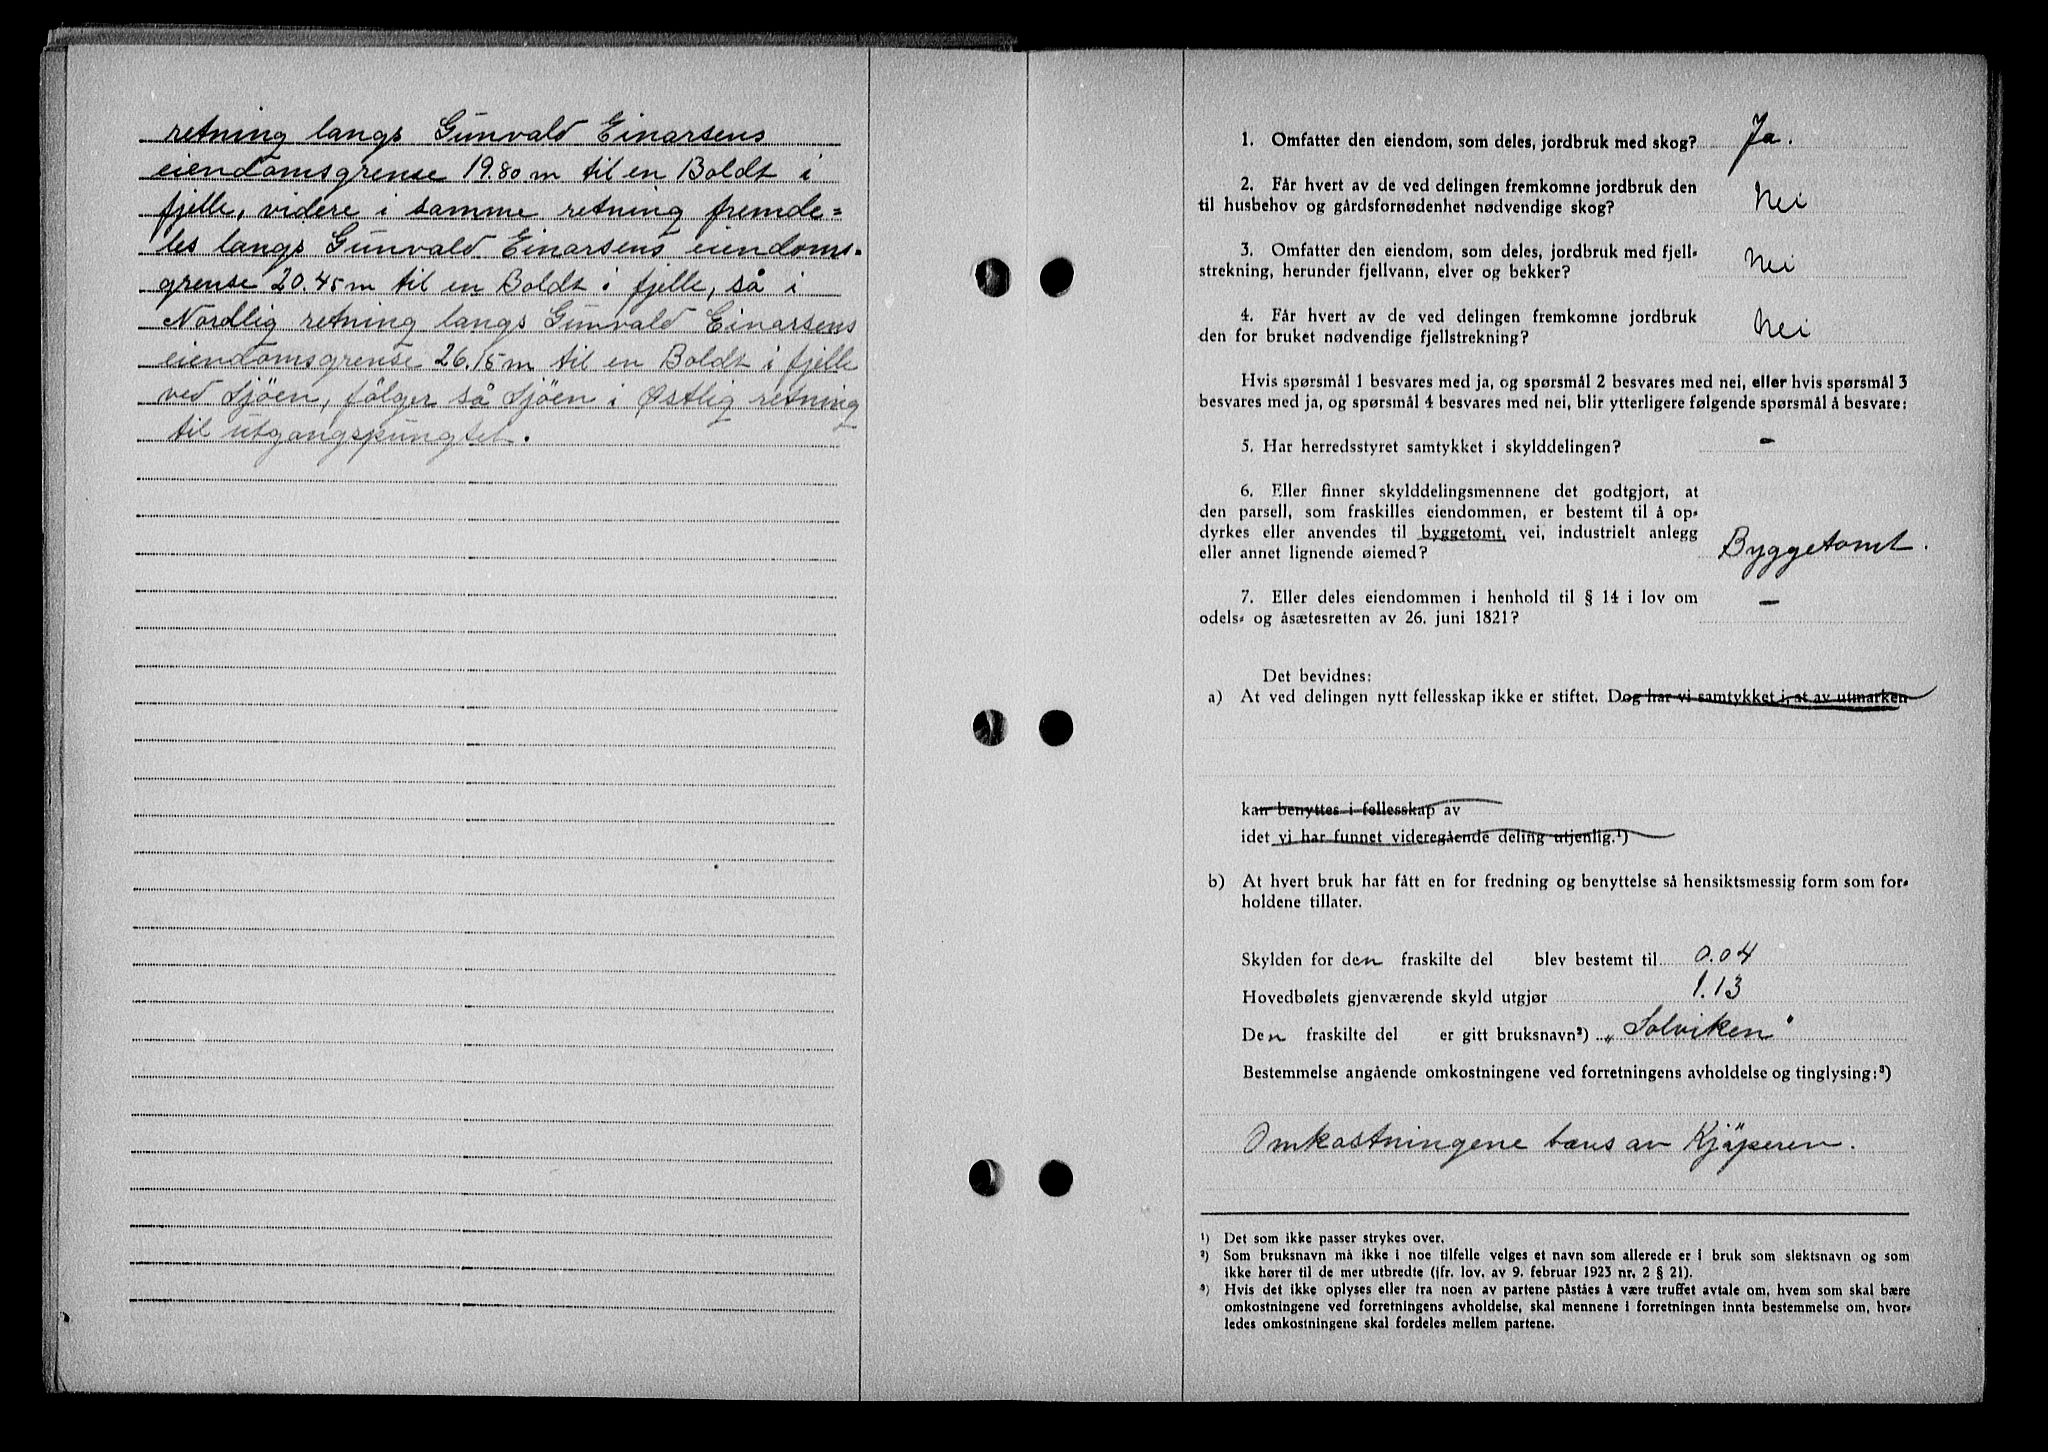 retning langs Gunvald Einarsens
eiendomsgrense 19.80 m til en Boldt i
fjelle, videre i samme retning fremde=
les langs Gunvald Einarsens eiendoms-
grense 20.45 m til en Boldt i fjelle, så i
Nordlig retning langs Gunvald Einarsens
eiendomsgrense 26.15 m til en Boldt i fjelle
ved Sjöen, fölger så Sjöen i Østlig retning
til utgangspungtet.
1. Omfatter den eiendom, som deles, jordbruk med skog? Ja.
2. Får hvert av de ved delingen fremkomne jordbruk den
til husbehov og gårdsfornødenhet nødvendige skog? Nei
3. Omfatter den eiendom, som deles, jordbruk med fjell=
strekning, herunder fjellvann, elver og bekker? Nei
4. Får hvert av de ved delingen fremkomne jordbruk
den for bruket nødvendige fjellstrekning? Nei
Hvis spørsmål 1 besvares med ja, og spørsmål 2 besvares med nei, eller hvis spørsmål 3
besvares med ja, og spørsmål 4 besvares med nei, blir ytterligere følgende spørsmål å besvare:
5. Har herredsstyret samtykket i skylddelingen? -
6. Eller finner skylddelingsmennene det godtgjort, at
den parsell, som fraskilles eiendommen, er bestemt til å op=
dyrkes eller anvendes til byggetomt, vei, industrielt anlegg
eller annet lignende øiemed? Byggetomt.
7. Eller deles eiendommen i henhold til § 14 i lov om
odels= og åsætesretten av 26. juni 1821? -
Det bevidnes:
a) At ved delingen nytt fellesskap ikke er stiftet. Dog har vi samtykket i, at av utmarken
kan benyttes i fellesskap av
idet vi har funnet videregående deling utjenlig.¹)
b) At hvert bruk har fått en for fredning og benyttelse så hensiktsmessig form som for=
holdene tillater.
Skylden for den fraskilte del blev bestemt til 0.04
Hovedbølets gjenværende skyld utgjør 1.13
Den fraskilte del er gitt bruksnavn²) „Solviken"
Bestemmelse angående omkostningene ved forretningens avholdelse og tinglysing:³)
Omkostningene bæres av Kjöperen.
¹) Det som ikke passer strykes over.
²) Som bruksnavn må ikke i noe tilfelle velges et navn som allerede er i bruk som slektsnavn og som
ikke hører til de mer utbredte (jfr. lov. av 9. februar 1923 nr. 2 § 21).
³) Hvis det ikke oplyses eller fra noen av partene påståes å være truffet avtale om, hvem som skal bære
omkostningene ved forretningens avholdelse, skal mennene i forretningen innta bestemmelse om, hvor=
ledes omkostningene skal fordeles mellem partene.